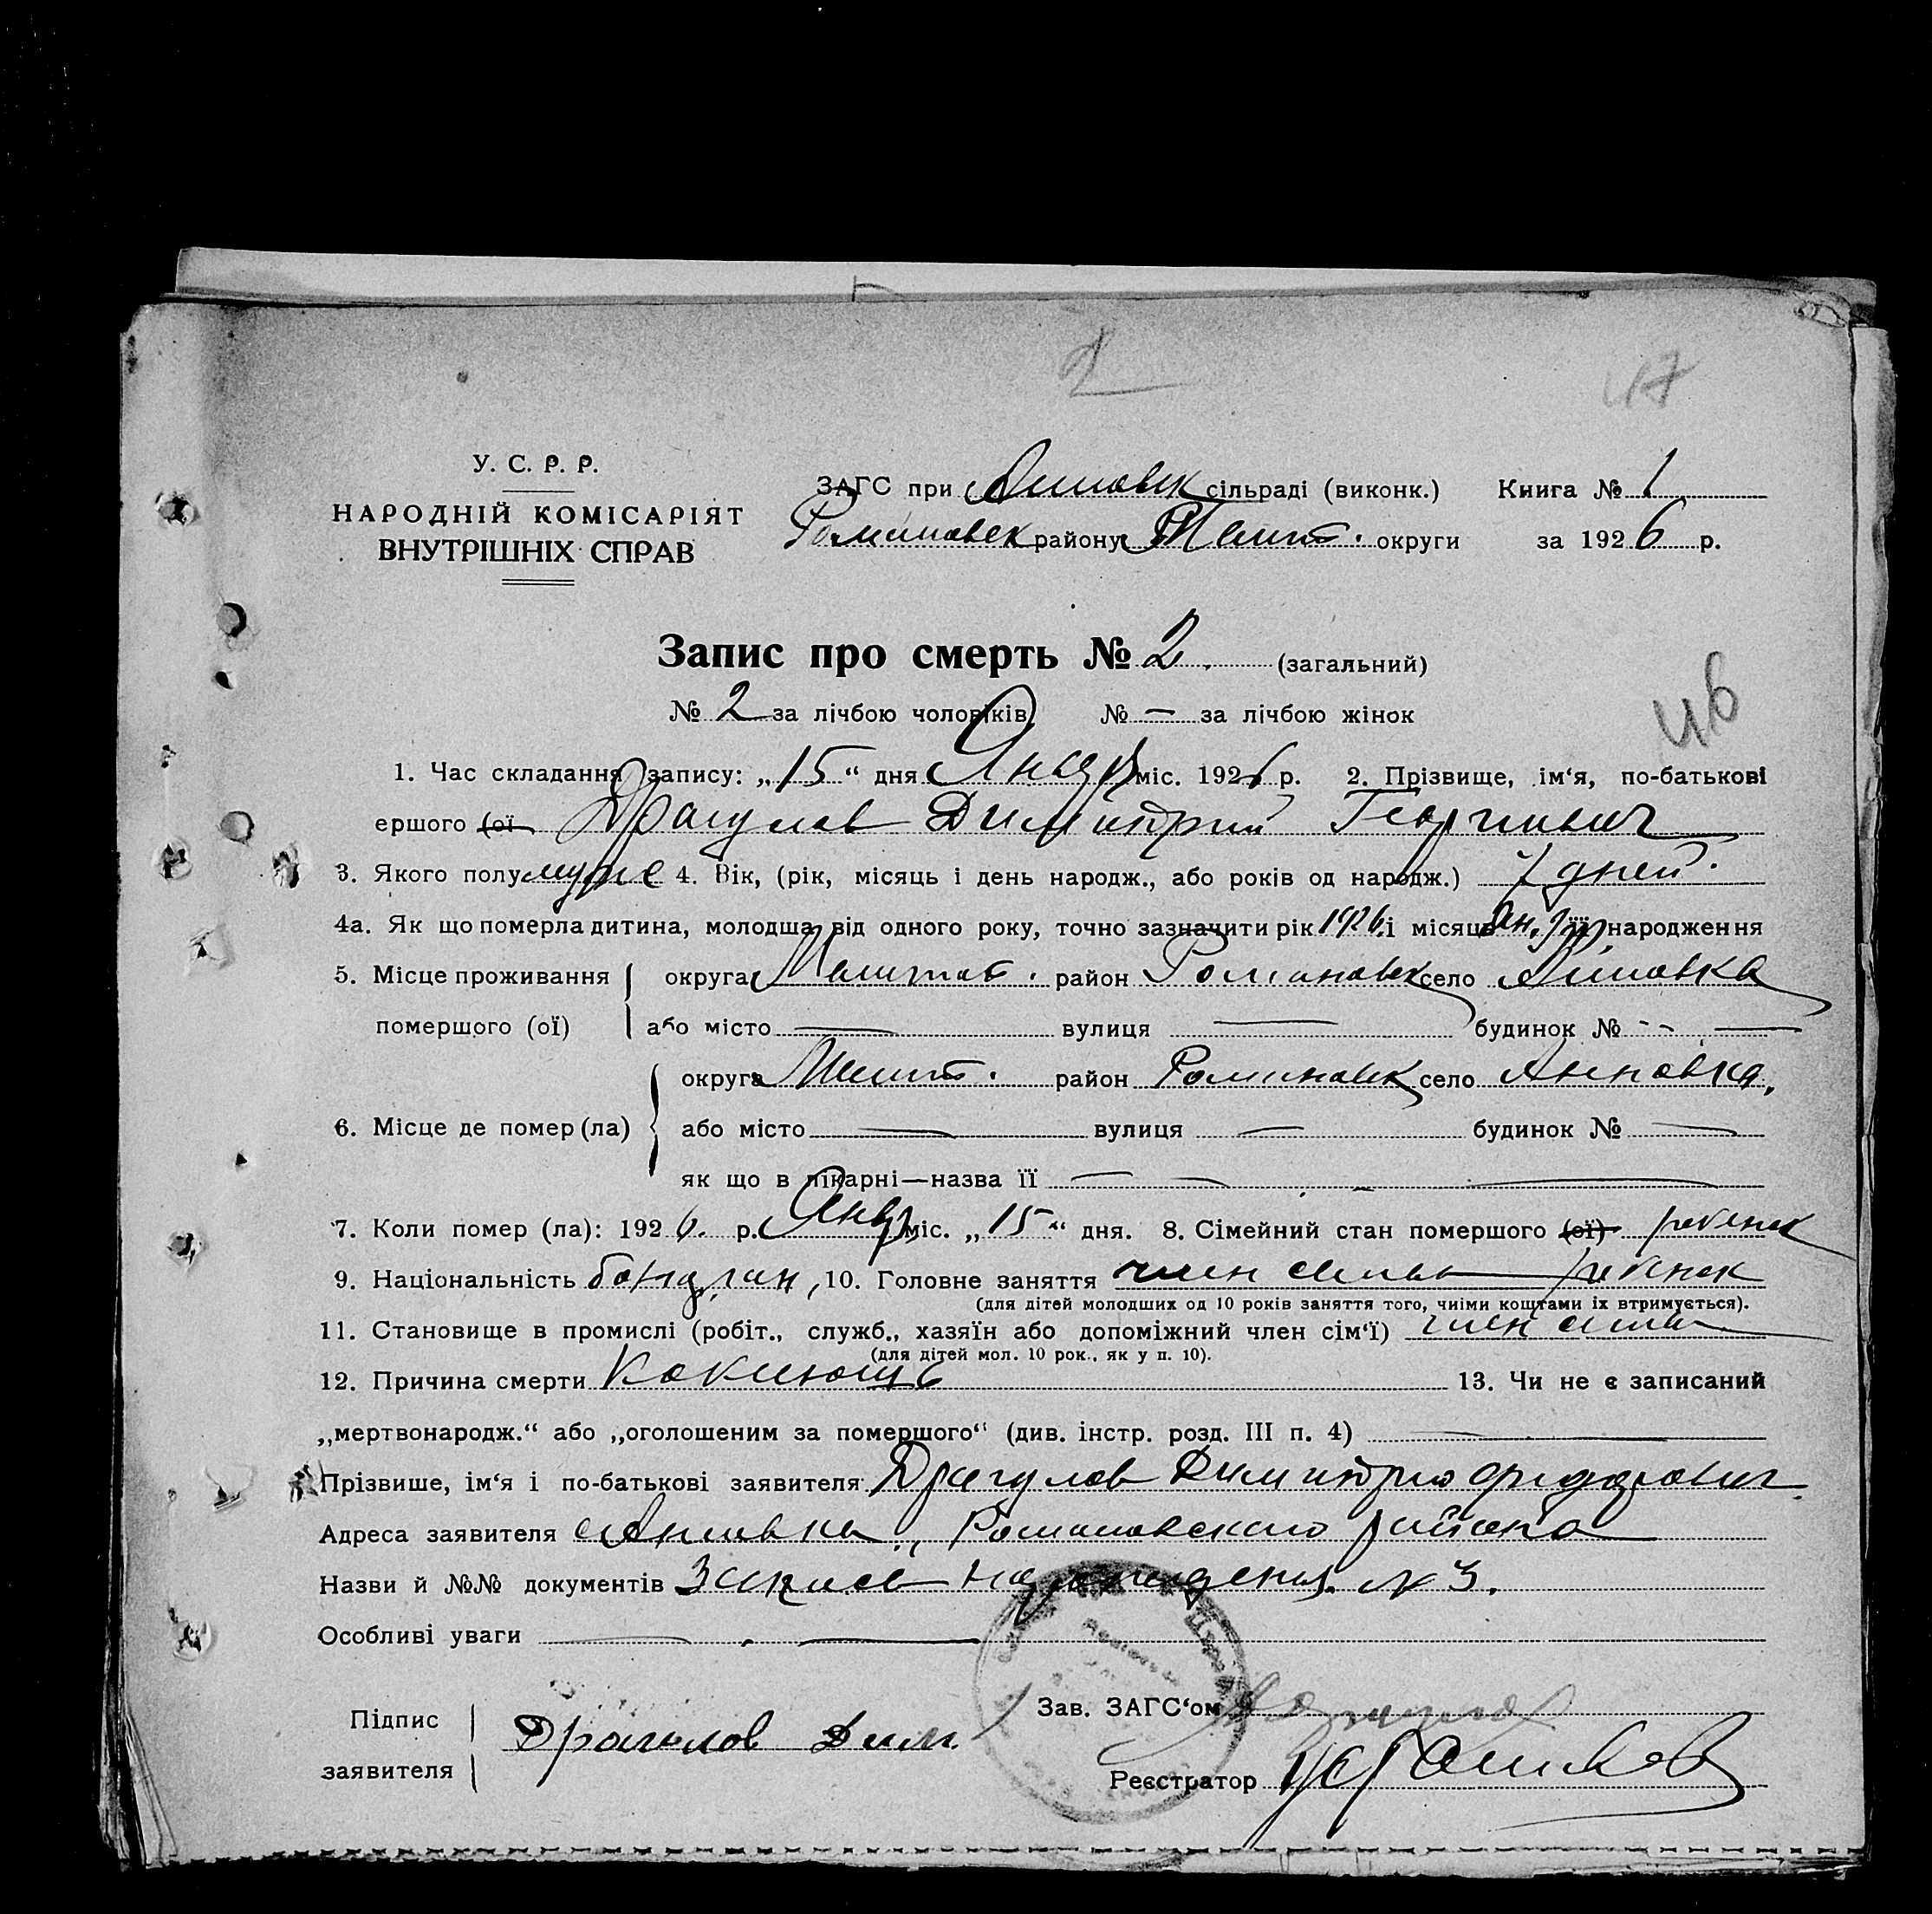 2
47
У. С. Р. Р.
НАРОДНІЙ КОМІСАРІЯТ
ВНУТРІШНІХ СПРАВ
ЗАГС при Анновск сільраді (виконк.) Книга № 1
Романовск району Мелит. округи за 1926 р.
Запис про смерть № 2. (загальний)
№ 2 за лічбою чоловіків № — за лічбою жінок
46
1. Час складання запису: „15“ дня Январ міс. 1926 р. 2. Прізвище, ім‘я, по-батькові
ершого (ої Драгулов Димитрий Георгиевич
3. Якого полу муж 4. Вік, (рік, місяць і день народж., або років од народж.) 7 дней.
4а. Як що померла дитина, молодша від одного року, точно зазначити рік 1926 і місяць Янв. її народження
5. Місце проживання округа Мелитоп. район Романовск село Анновка
помершого (ої) або місто — вулиця — будинок № —
округа Мелит. район Романовск село Анновка,
6. Місце де помер (ла) або місто — вулиця — будинок № —
як що в лікарні—назва її —
7. Коли помер (ла): 1926. р. Янвр міс. „15“ дня. 8. Сімейний стан помершого (ої) ребенок
9. Національність болгарин, 10. Головне заняття член семьи ребенок
(для дітей молодших од 10 років заняття того, чиїми коштами їх втримується).
11. Становище в промислі (робіт., служб., хазяїн або допоміжний член сім‘ї) член семьи
(для дітей мол. 10 рок., як у п. 10).
12. Причина смерти Коклюшь 13. Чи не є записаний
„мертвонародж.“ або „оголошеним за помершого“ (див. інстр. розд. III п. 4) —
Прізвише, ім‘я і по-батькові заявителя: Драгулов Димитрий
Адреса заявителя Анновка, Романовского района
Назви й №№ документів Запись на рождения № 3.
Особливі уваги —
Підпис
заявителя
Драгулов Дим.
Зав. ЗАГС‘ом
Реєстратор